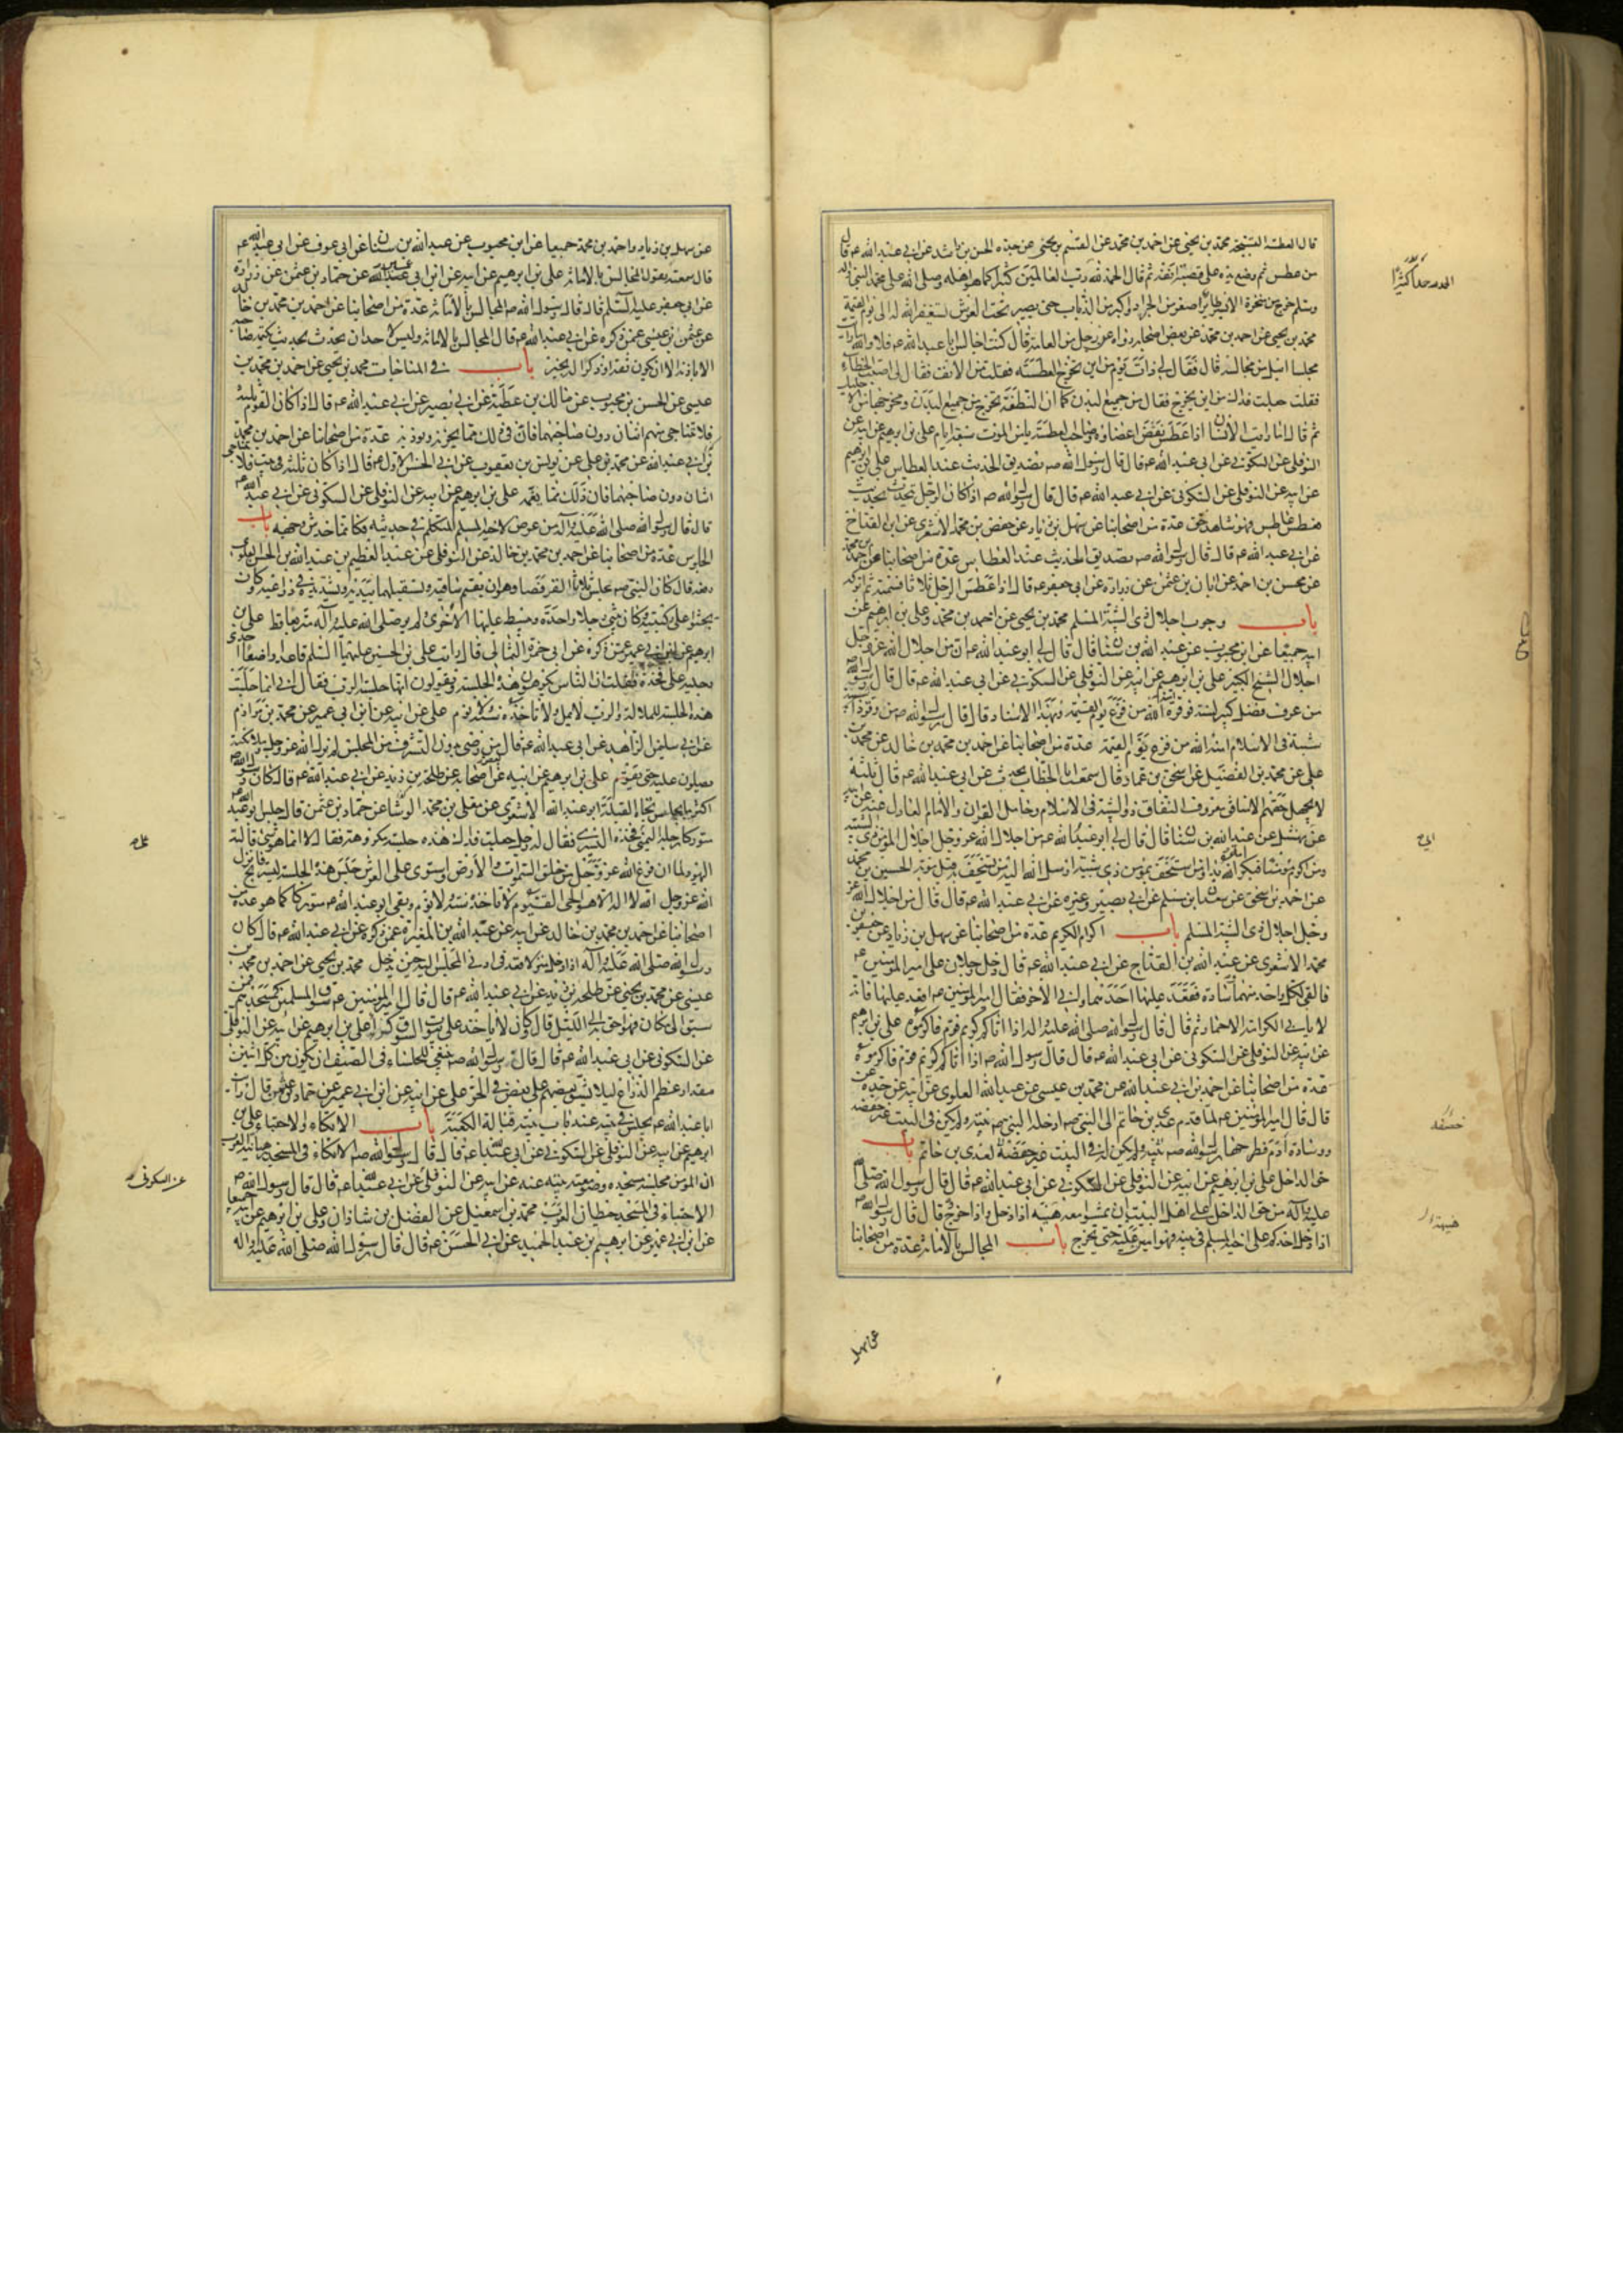 قال العطسة القبيحة محمد بن يحيى عن احمد بن محمد عن القسم بن يحيى عن جده الحسن بن راشد عن ابي عبد الله ع قال
من عطس ثم وضع يده على قصبة انفه ثم قال الحمد لله رب العالمين كثيرا كما هو اهله وصلى الله على محمد النبي واله
وسلم خرج من منخره الايسر طاير اصغر من الجراد واكبر من الذباب حتى يصير تحت العرش يستغفر الله له الى يوم القيمة
محمد بن يحيى عن احمد بن محمد عن بعض اصحابه رواه عن رجل من العامة قال كنت اجالس ابا عبد الله ع فلا والله ما رايت
مجلسا انبل من مجالسه قال فقال لي ذات يوم من اين تخرج العطسة فقلت من الانف فقال لي اصبت الخطاء
فقلت جعلت فداك من اين يخرج فقال من جميع البدن كما ان النطفة تخرج من جميع البدن ومخرجها من الاحليل
ثم قال اما رايت الانسان اذا عطس نفض اعضاؤه وصاحب العطسة يامن الموت سبعة ايام علي بن ابرهيم عن ابيه عن
النوفلي عن السكوني عن ابي عبد الله ع قال قال رسول الله ص تصديق الحديث عند العطاس علي بن ابرهيم
عن ابيه عن النوفلي عن السكوني عن ابي عبد الله ع قال قال رسول الله ص اذا كان الرجل يتحدث بحديث
فعطس عاطس فهو شاهد حق عدة من اصحابنا عن سهل بن زياد عن جعفر بن محمد الاشعري عن ابن القداح
عن ابي عبد الله ع قال قال رسول الله ص تصديق الحديث عند العطاس عدة من اصحابنا عن احمد بن محمد
عن محسن بن احمد عن ابان بن عثمن عن زرارة عن ابي جعفر ع قال اذا عطس الرجل ثلاثا فسمته ثم اتركه
باب وجوب اجلال ذي الشيبة المسلم محمد بن يحيى عن احمد بن محمد وعلي بن ابرهيم عن
ابيه جميعا عن ابن محبوب عن عبد الله بن سنان قال قال لي ابو عبد الله ع ان من اجلال الله عز وجل
اجلال الشيخ الكبير علي بن ابرهيم عن ابيه عن النوفلي عن السكوني عن ابي عبد الله ع قال قال رسول الله ص
من عرف فضل كبير لسنه فوقره امنه الله من فزع يوم القيمة وبهذا الاسناد قال قال رسول الله ص من وقر ذا
شيبة في الاسلام امنه الله من فزع يوم القيمة عدة من اصحابنا عن احمد بن محمد بن خالد عن محمد بن
علي عن محمد بن الفضيل عن اسحق بن عمار قال سمعت ابا الخطاب يحدث عن ابي عبد الله ع قال ثلثة
لا يجهل حقهم الا منافق معروف النفاق ذو الشيبة في الاسلام وحامل القران والامام العادل عنه عن ابيه
عن ابي نهشل عن عبد الله بن سنان قال قال لي ابو عبد الله ع من اجلال الله عز وجل اجلال المؤمن ذي الشيبة
ومن اكرم مؤمنا فبكرامة الله بدا ومن استخف بمؤمن ذي شيبة ارسل الله اليه من يستخف به قبل موته الحسين بن محمد
عن احمد بن اسحق عن سعدان بن مسلم عن ابي بصير وغيره عن ابي عبد الله ع قال قال من اجلال الله عز
وجل اجلال ذي الشيبة المسلم باب اكرام الكريم عدة من اصحابنا عن سهل بن زياد عن جعفر بن
محمد الاشعري عن عبد الله بن القداح عن ابي عبد الله ع قال دخل رجلان على امير المؤمنين ع
فالقى لكل واحد منهما وسادة فقعد عليها احدهما وابي الاخر فقال امير المؤمنين ع اقعد عليها فانه
لا يابى الكرامة الا حمار ثم قال قال رسول الله صلى الله عليه واله اذا اتاكم كريم قوم فاكرموه علي بن ابرهيم
عن ابيه عن النوفلي عن السكوني عن ابي عبد الله ع قال قال رسول الله ص اذا اتاكم كريم قوم فاكرموه
عدة من اصحابنا عن احمد بن ابي عبد الله عن محمد بن عيسى عن عبد الله العلوي عن ابيه عن جده
قال قال امير المؤمنين ع لما قدم عدي بن حاتم الى النبي ص ادخله النبي ص بيته ولم يكن في البيت غير خصفة
ووسادة ادم فطرحها رسول الله ص لعدي بن حاتم باب
حق الداخل علي بن ابرهيم عن ابيه عن النوفلي عن السكوني عن ابي عبد الله ع قال قال رسول الله صلى الله
عليه واله من حق الداخل على اهل البيت ان يمشوا معه هنيهة اذا دخل واذا خرج قال قال رسول الله ص
اذا دخل احدكم على اخيه المسلم في بيته فهو امير عليه حتى يخرج باب المجالس بالامانة عدة من اصحابنا
الحمد لله حمدا كثيرا
خصفة
عن سهل
عن سهل بن زياد واحمد بن محمد جميعا عن ابن محبوب عن عبد الله بن سنان عن ابي عوف عن ابي عبد الله ع
قال سمعته يقول المجالس بالامانة علي بن ابرهيم عن ابيه عن ابن ابي عمير عن حماد بن عثمن عن زرارة
عن ابي جعفر عليه السلم قال قال رسول الله ص المجالس بالامانة عدة من اصحابنا عن احمد بن محمد بن خالد
عن عثمن بن عيسى عمن ذكره عن ابي عبد الله ع قال المجالس بالامانة وليس لاحد ان يحدث بحديث يكتمه صاحبه
الا باذنه الا ان يكون ثقة او ذكرا له بخير باب في المناجات محمد بن يحيى عن احمد بن محمد بن
عيسى عن الحسن بن محبوب عن مالك بن عطية عن ابي بصير عن ابي عبد الله ع قال اذا كان القوم ثلثة
فلا يتناجى منهم اثنان دون صاحبهما فان في ذلك مما يحزنه ويؤذيه عدة من اصحابنا عن احمد بن محمد
بن ابي عبد الله عن محمد بن علي عن يونس بن يعقوب عن ابي الحسن الاول ع قال اذا كان ثلثة في بيت فلا يتناجى
اثنان دون صاحبهما فان ذلك مما يغمه علي بن ابرهيم عن ابيه عن النوفلي عن السكوني عن ابي عبد الله ع
قال قال رسول الله صلى الله عليه واله من عرض لاخيه المسلم المتكلم في حديثه فكانما خدش وجهه باب
الجلوس عدة من اصحابنا عن احمد بن محمد بن خالد عن النوفلي عن عبد العظيم بن عبد الله بن الحسن العلوي
رفعه قال كان النبي ص يجلس ثلاثا القرفصا وهو ان يقيم ساقيه ويستقبلهما بيديه ويشد يده في ذراعيه وكان
يجثوا على ركبتيه وكان يثني رجلا واحدة ويبسط عليها الاخرى ولم ير صلى الله عليه واله متربعا قط علي بن
ابرهيم عن ابيه عن ابن ابي عمير عمن ذكره عن ابي حمزة الثمالي قال رايت علي بن الحسين عليهما السلم قاعدا واضعا احدى
رجليه على فخذه فقلت ان الناس يكرهون هذه الجلسة ويقولون انها جلسة الرب فقال اني انما جلست
هذه الجلسة للملالة والرب لا يمل ولا تاخذه سنة ولا نوم علي عن ابيه عن ابن ابي عمير عن محمد بن مرازم
عن ابي سليمن الزاهد عن ابي عبد الله ع قال من رضي بدون التشرف من المجلس لم يزل الله عز وجل وملئكته
يصلون عليه حتى يقوم علي بن ابرهيم عن ابيه عن بعض اصحابه عن طلحة بن زيد عن ابي عبد الله ع قال كان رسول الله ص
اكثر ما يجلس تجاه القبلة ابو عبد الله الاشعري عن معلى بن محمد الوشا عن حماد بن عثمن قال جلس ابو عبد الله ع
متوركا رجله اليمنى على فخذه اليسرى فقال له رجل جعلت فداك هذه جلسة مكروهة فقال لا انما هو شيء قالته
اليهود لما ان فرغ الله عز وجل من خلق السموات والارض واستوى على العرش جلس هذه الجلسة ليستريح فانزل
الله عز وجل الله لا اله الا هو الحي القيوم لا تاخذه سنة ولا نوم وبقي ابو عبد الله ع متوركا كما هو عدة من
اصحابنا عن احمد بن محمد بن خالد عن ابيه عن عبد الله بن المغيرة عمن ذكره عن ابي عبد الله ع قال كان
رسول الله صلى الله عليه واله اذا دخل منزلا قعد في ادنى المجلس اليه حين يدخل محمد بن يحيى عن احمد بن محمد بن
عيسى عن محمد بن يحيى عن طلحة بن زيد عن ابي عبد الله ع قال قال امير المؤمنين ع سوق المسلمين كمسجدهم فمن
سبق الى مكان فهو احق به الى الليل قال وكان لا ياخذ على بيوت السوق كرا علي بن ابرهيم عن ابيه عن النوفلي
عن السكوني عن ابي عبد الله ع قال قال رسول الله ص ينبغي للجلساء في الصيف ان يكون بين كل اثنين
مقدار عظم الذراع ليلا يشق بعضهم على بعض في الحر علي عن ابيه عن ابن ابي عمير عن حماد بن عثمن قال رايت
ابا عبد الله ع يجلس في بيته عند باب بيته قبالة الكعبة باب الاتكاء والاحتباء علي بن
ابرهيم عن ابيه عن النوفلي عن السكوني عن ابي عبد الله ع قال قال رسول الله ص الاتكاء في المسجد رهبانية العرب
ان المؤمن مجلسه مسجده وصومعته بيته عنه عن ابيه عن النوفلي عن ابي عبد الله ع قال قال رسول الله ص
الاحتباء في المسجد حيطان العرب محمد بن اسمعيل عن الفضل بن شاذان وعلي بن ابرهيم عن ابيه جميعا
عن ابن ابي عمير عن ابرهيم بن عبد الحميد عن ابي الحسن ع قال قال رسول الله صلى الله عليه واله
عن السكوني